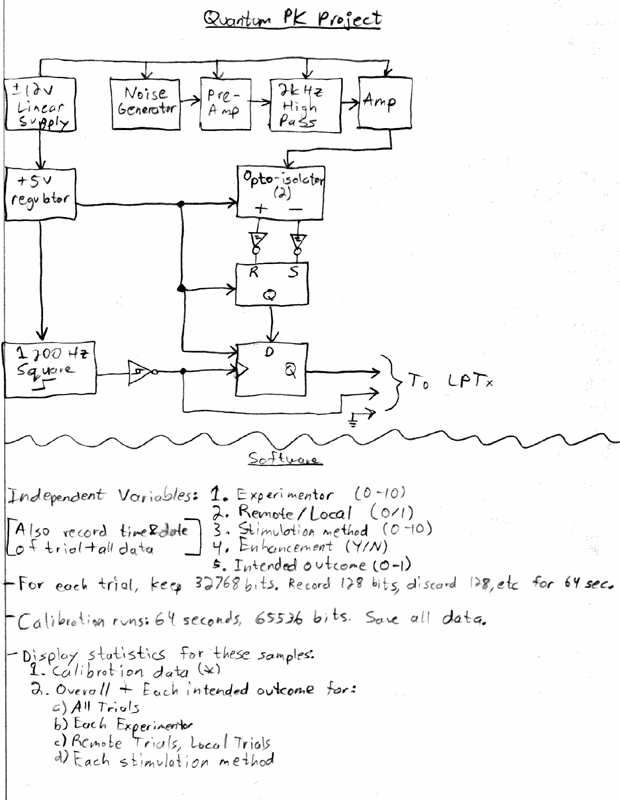 Quantum PK Project
±12v Linear Supply
Noise Generator
Pre-Amp
2kHz High Pass
Amp
+5v regulator
Opto-isolator (2)
+ −
R S
Q
1200 Hz Square
D
Q
To LPTx
Software
Independent Variables: 1. Experimentor (0-10)
2. Remote/Local (0/1)
[Also record time & date of trial + all data]
3. Stimulation method (0-10)
4. Enhancement (Y/N)
5. Intended outcome (0-1)
- For each trial, keep 32768 bits. Record 128 bits, discard 128, etc for 64 sec.
- Calibration runs: 64 seconds, 65536 bits. Save all data.
- Display statistics for these samples:
1. Calibration data (*)
2. Overall + Each intended outcome for:
a) All Trials
b) Each Experimentor
c) Remote Trials, Local Trials
d) Each stimulation method